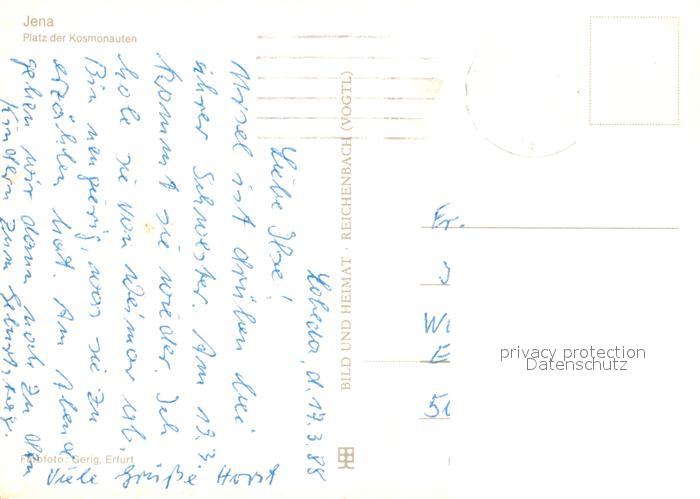 Jena
Platz der Kosmonauten
Lobeda, d. 17.3.88
Liebe Ilse!
Missel ist drüben bei
ihrer Schwester. Am 19.3.
kommt sie wieder. Ich
hole sie von Weimar ab.
Bin neugierig, was sie zu
erzählen hat. Am Abend
gehen wir dann noch zu den
Kindern zum Geburtstag.
Viele Grüße Horst
Farbfoto: Gerig, Erfurt
BILD UND HEIMAT · REICHENBACH (VOGTL)
Fr.
privacy protection
Datenschutz